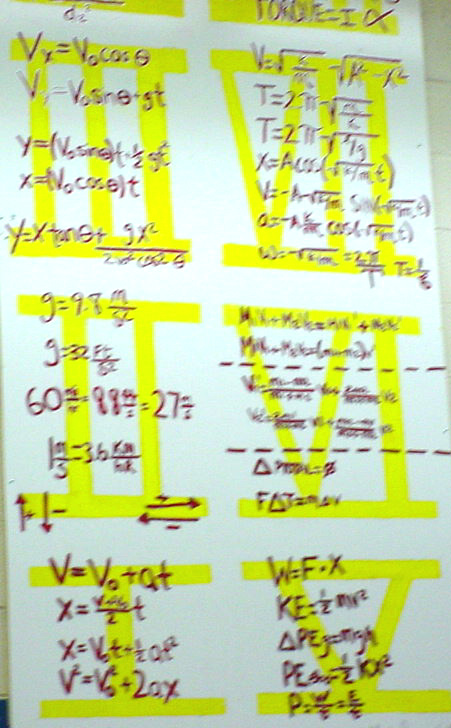 d²
TORQUE=I α
Vx=V₀cosθ
Vy=V₀sinθ-gt
y=(V₀sinθ)t-½gt²
x=(V₀cosθ)t
y=xtanθ+ gx²/2V₀²cos²θ
V=√k/m √A²-x²
T=2π√m/k
T=2π√l/g
X=Acos(√k/m t)
V=-A√k/m sin(√k/m t)
a=-A k/m cos(√k/m t)
ω=√k/m =2π/T T=1/f
g=9.8 m/s²
g=32 Ft/s²
60 =88 =27 m/s
1 m/s=3.6 KM/HR
+ -
+
-
M₁V₁+M₂V₂=M₁V₁'+M₂V₂'
M₁V₁+M₂V₂=(m₁+m₂)V'
FΔT=mΔv
V=V₀+at
X= t
X=V₀t+½at²
V²=V₀²+2ax
W=F•X
KE=½mv²
ΔPEg=mgh
PE =½Kx²
P=W/t=E/t